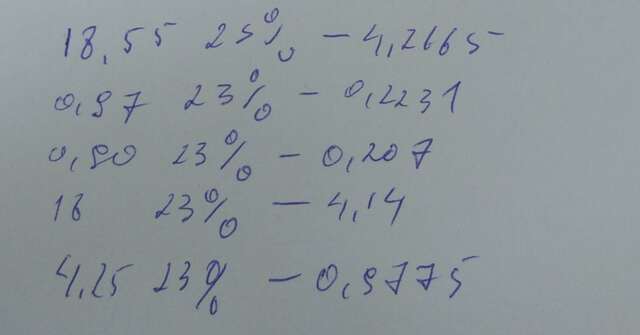 18,55 23% – 4,2665
0,97 23% – 0,2231
0,90 23% – 0,207
18 23% – 4,14
4,25 23% – 0,9775